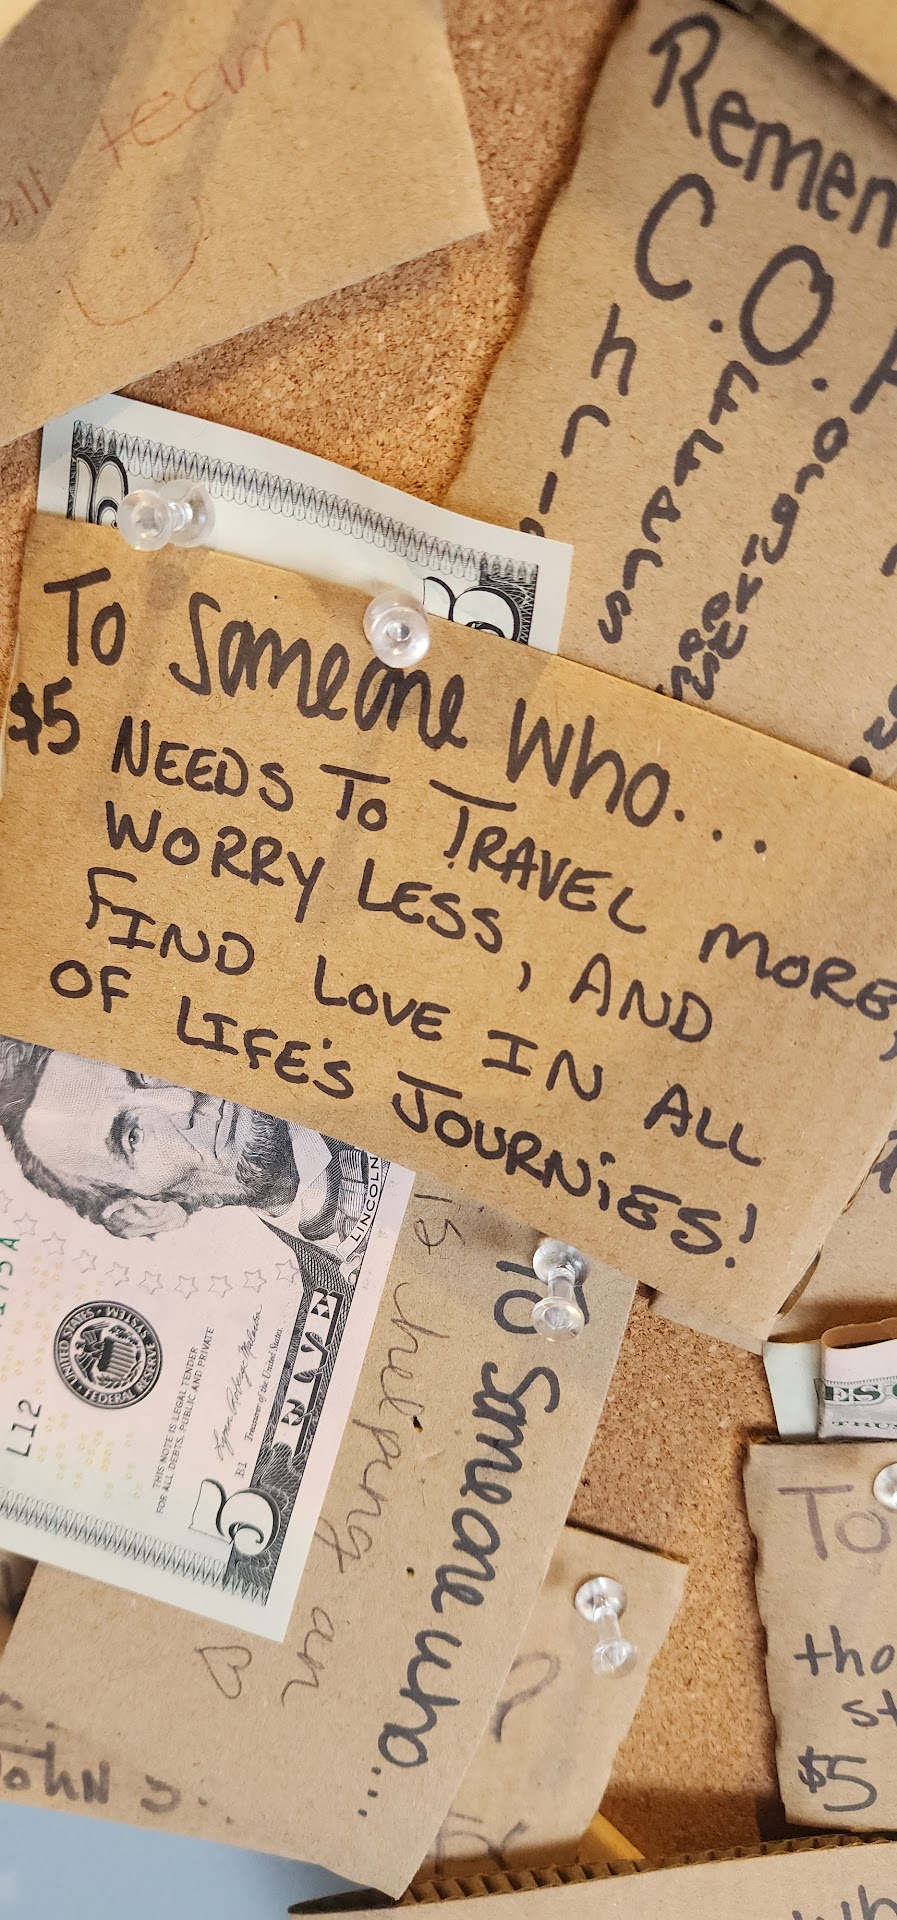 team
Remem
C.O.
hri
ffers
To Someone Who...
$5 NEEDS TO TRAVEL MORE,
WORRY LESS, AND
FIND LOVE IN ALL
OF LIFE'S JOURNiES!
LINCOLN
FIVE
UNITED STATES
FEDERAL RESERVE SYSTEM
L12
THIS NOTE IS LEGAL TENDER
FOR ALL DEBTS, PUBLIC AND PRIVATE
Treasurer of the United States.
B1
5
TO Someone who...
is helping an
ES
TRUS
To
tho
st
$5
OHN 3